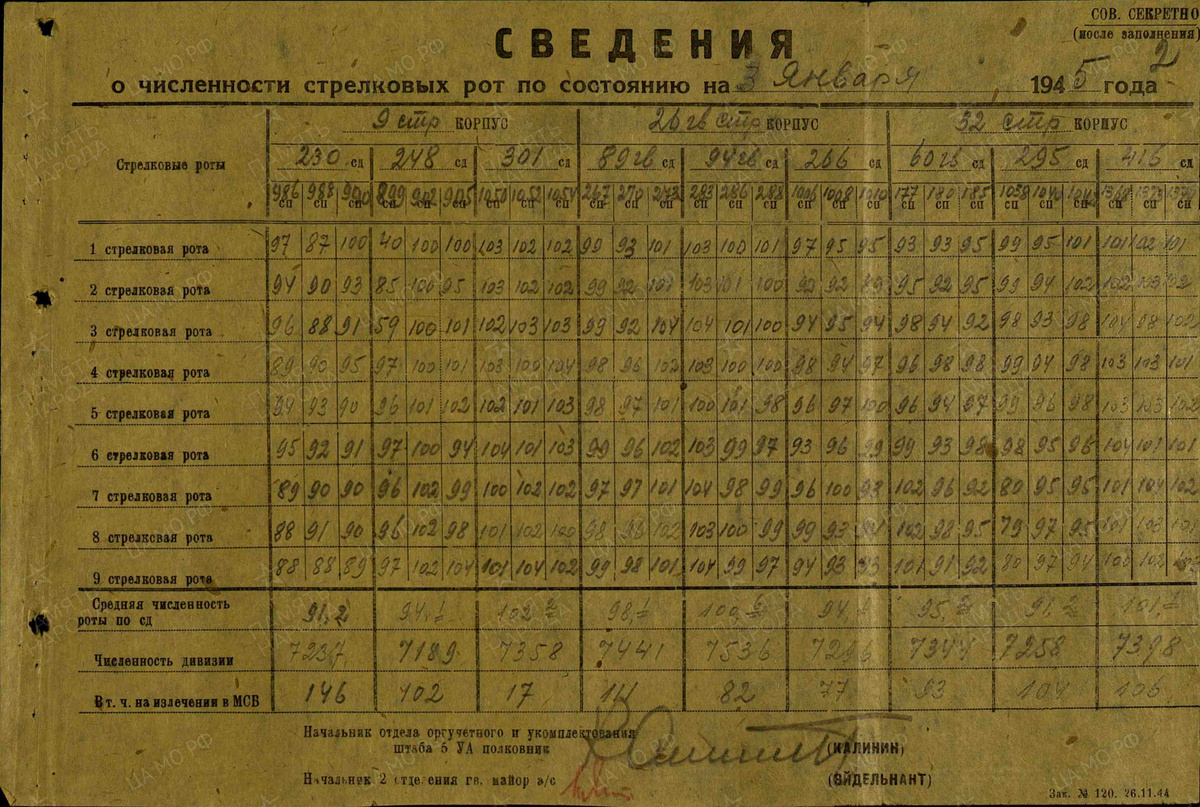 СОВ. СЕКРЕТНО
(после заполнения)
2
СВЕДЕНИЯ
о численности стрелковых рот по состоянию на 3 Января 1945 года
Стрелковые роты 9 стр КОРПУС 26 гв стр КОРПУС 32 стр КОРПУС
230 сд 248 сд 301 сд 89 гв сд 94 гв сд 266 сд 60 гв сд 295 сд 416 сд
986 988 990 899 902 905 1050 1052 1054 267 270 273 283 286 288 1006 1008 1010 177 180 185 1038 1040 1042 1368 1373 1374
сп сп сп сп сп сп сп сп сп сп сп сп сп сп сп сп сп сп сп сп сп сп сп сп сп сп сп
1 стрелковая рота 97 87 100 40 100 100 103 102 102 99 93 101 103 100 101 97 95 95 93 93 95 99 95 101 101 102 101
2 стрелковая рота 94 90 93 85 100 95 103 102 102 99 92 101 103 101 100 92 92 89 95 92 95 99 94 102 102 103 102
3 стрелковая рота 96 88 91 59 100 101 102 103 103 99 92 104 104 101 100 94 95 94 98 94 92 98 93 98 104 98 102
4 стрелковая рота 89 90 95 97 100 101 103 100 104 98 96 102 103 100 100 98 94 97 96 98 98 99 94 98 103 103 101
5 стрелковая рота 94 93 90 96 101 102 102 101 103 98 97 101 100 101 98 96 97 100 96 94 97 99 96 98 103 103 102
6 стрелковая рота 95 92 91 97 100 94 104 101 103 99 96 102 103 99 97 93 96 99 99 93 98 98 95 96 104 101 101
7 стрелковая рота 89 90 90 96 102 99 100 102 102 97 97 101 104 98 99 96 100 98 102 96 92 80 95 95 101 104 102
8 стрелковая рота 88 91 90 96 102 98 101 102 100 98 96 102 103 100 99 99 93 91 102 98 95 79 97 95 101 103 101
9 стрелковая рота 88 88 89 97 102 104 101 104 102 99 98 101 104 99 97 94 93 93 101 91 92 80 97 94 100 102
Средняя численность
роты по сд 91,2 94,1 102,2 98,1 100,6 94 95,2 91,2 101,1
Численность дивизии 7237 7189 7358 7441 7536 7296 7344 7258 7398
В т. ч. на излечении в МСБ 146 102 17 14 82 77 93 104 106
Начальник отдела оргучетного и укомплектования
штаба 5 УА полковник (КАЛИНИН)
Начальник 2 отделения гв. майор а/с (ЭЙДЕЛЬНАНТ)
Зак. № 120. 26.11.44
ПАМЯТЬ НАРОДА
ЦА МО РФ